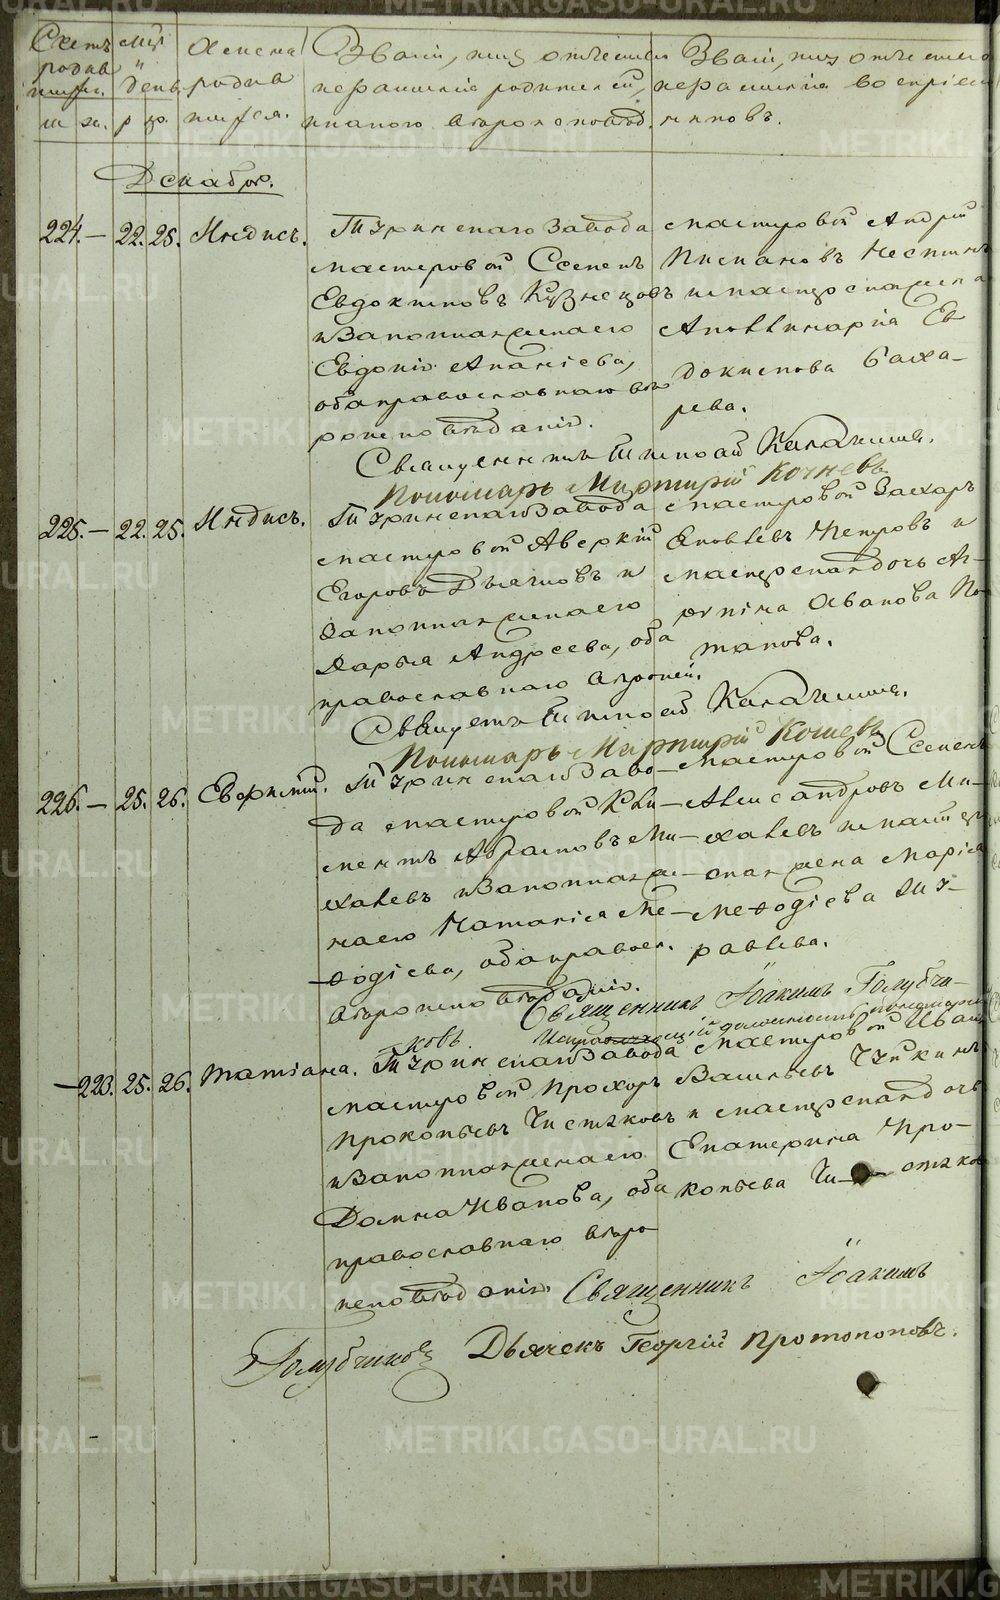 Счетъ родив шихся. м. ж.
м-цъ и день. р. кр.
Имена родив шихся.
Званіе, имя отчество и фамилія родителей, и какого вѣроисповѣд.
Званіе, имя отчество и фамилія воспріем никовъ.
Декабрь.
224. — 22. 25. Индисъ.
Туринскаго завода
мастеровой Семенъ
Евдокимовъ Кузнецовъ
и законная жена его
Евдокія Ананіева,
оба православнаго вѣ
роисповѣданія.
мастеровой Андрей
Аполлинарія Ев
докимова
рева.
Священникъ Тимоѳей
Пономарь Мартирій Кочневъ
225. — 22. 25. Индисъ.
Туринскаго завода
мастеровой Аверкій
Егоровъ Дьячковъ и
законная жена его
Дарья Андреева, оба
православнаго вѣроисп.
мастеровой Захаръ
Яковлевъ Петровъ и
мастерская дочь Аг
рипина Иванова По
тапова.
Священникъ Тимоѳей
Пономарь Мартирій Кочневъ
226. — 25. 26. Евфимій.
Туринскаго заво
да мастеровой Кли
ментъ Абрамовъ Ми
халевъ и законная же
на его Наталія Ме
ѳодіева, оба правосл.
вѣроисповѣданія.
мастеровой Семенъ
Александровъ Ми
халевъ и мастер
ская жена Марія
Меѳодіева Жу
равлева.
Священникъ Іоакимъ Голубчи
ковъ. Исправляющій должность пономаря
— 223. 25. 26. Татіана.
Туринскаго завода
мастеровой Прохоръ
Прокопьевъ Чистяковъ
и законная жена его
Домна Иванова, оба
православнаго вѣро
исповѣданія.
мастеровой Иванъ
Васильевъ
и мастерская дочь
Екатерина Про
копьева Чи стяко
Священникъ Іоакимъ
Голубчиковъ Дьячекъ Георгій Протопоповъ.
METRIKI.GASO-URAL.RU